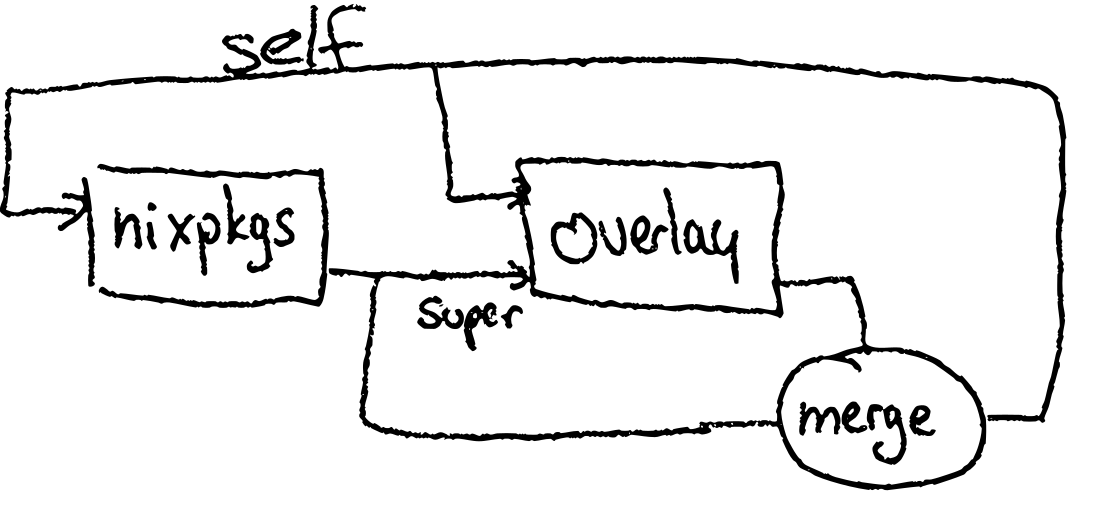 self
nixpkgs
overlay
super
merge